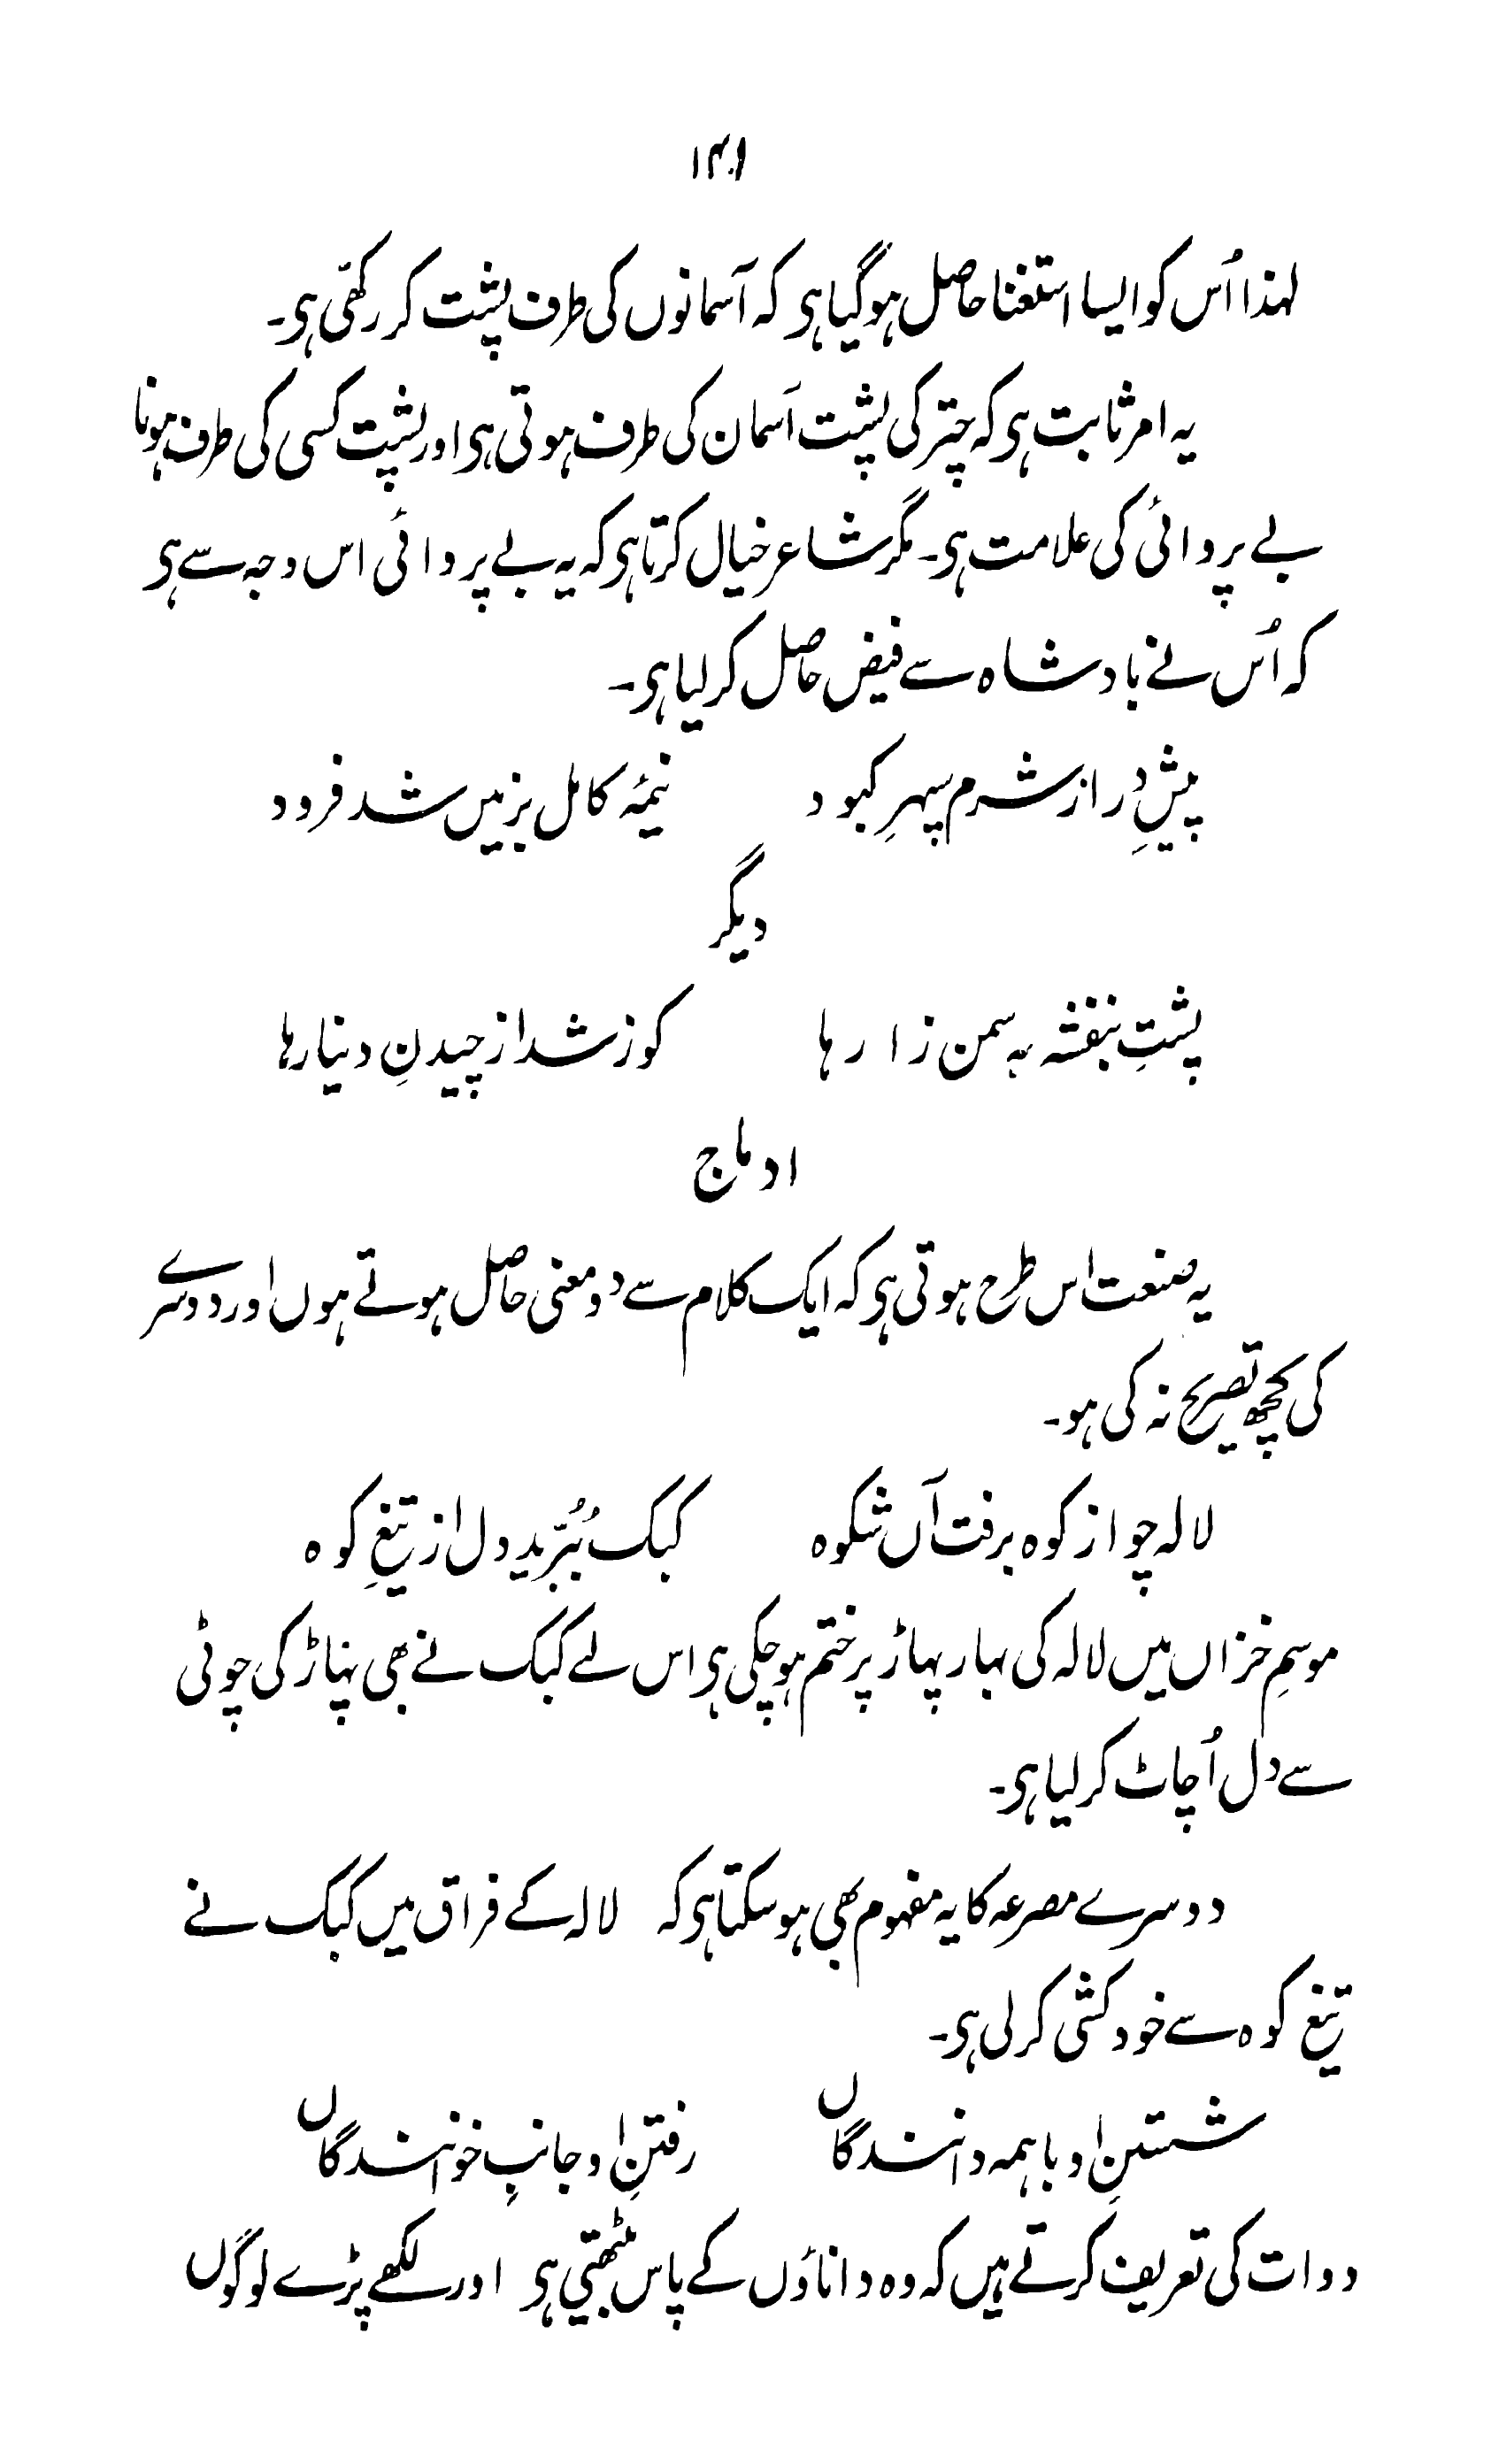 ۱۴۱
لہذا اُس کو ایسا استغنا حاصل ہوگیا ہی کہ آسمانوں کی طرف پشت کر رکھّی ہی۔
یہ امر ثابت ہی کہ چتر کی پشت آسمان کی طرف ہوتی ہی اور پشت کسی کی طرف ہونا
بے پروائی کی علامت ہی۔ مگر شاعر خیال کرتا ہی کہ یہ بے پروائی اس وجہ سے ہی
کہ اُس نے بادشاہ سے فیض حاصل کرلیا ہی۔
پیشِ دِر از شرم سپہرِ کبود نیمۂ کامل بزمیں شد فرود
دیگر
پشتِ بنفشہ بہ سمن زارہا کوز شد از چیدنِ دینارہا
ادماج
یہ صنعت اس طرح ہوتی ہی کہ ایک کلام سے دو معنی حاصل ہوتے ہوں اور دوسرے
کی کچھ تصریح نہ کی ہو۔
لالہ چو از کوہ برفت آں شکوہ کبک بُبُرّید دل از تیغِ کوہ
موسمِ خزاں میں لالہ کی بہار پہاڑ پر ختم ہوچکی ہی اس لئے کبک نے بھی پہاڑ کی چوٹی
سے دل اُچاٹ کرلیا ہی۔
دوسرے مصرعہ کا یہ مفہوم بھی ہوسکتا ہی کہ لالہ کے فراق میں کبک نے
تیغ کوہ سے خودکشی کرلی ہی۔
شستنِ او باہمہ دانندگاں رفتنِ او جانبِ خوانندگاں
دوات کی تعریف کرتے ہیں کہ وہ داناؤں کے پاس بیٹھتی ہی اور لکھے پڑے لوگوں